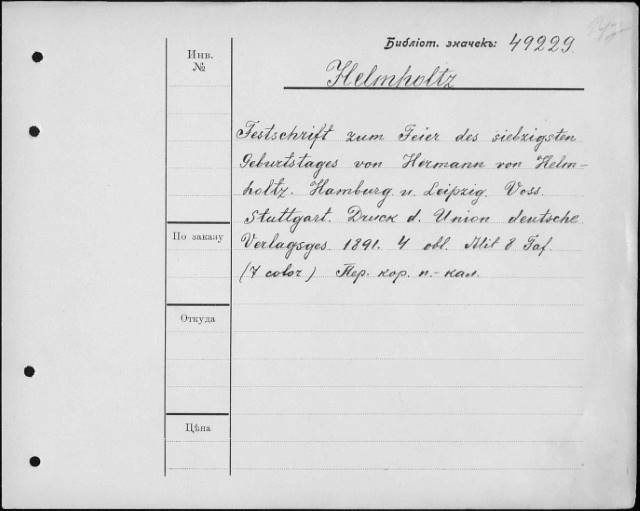 Библіот. значекъ: 49229.
Инв.
№
Helmholtz
Festschrift zum Feier des siebzigsten
Geburtstages von Hermann von Helm-
holtz. Hamburg u. Leipzig. Voss.
Stuttgart. Druck d. Union deutsche
По заказу
Verlagsges 1891. 4 obl. Mit 8 Taf.
(7 color) Пер. кор. п.-кал.
Откуда
Цѣна